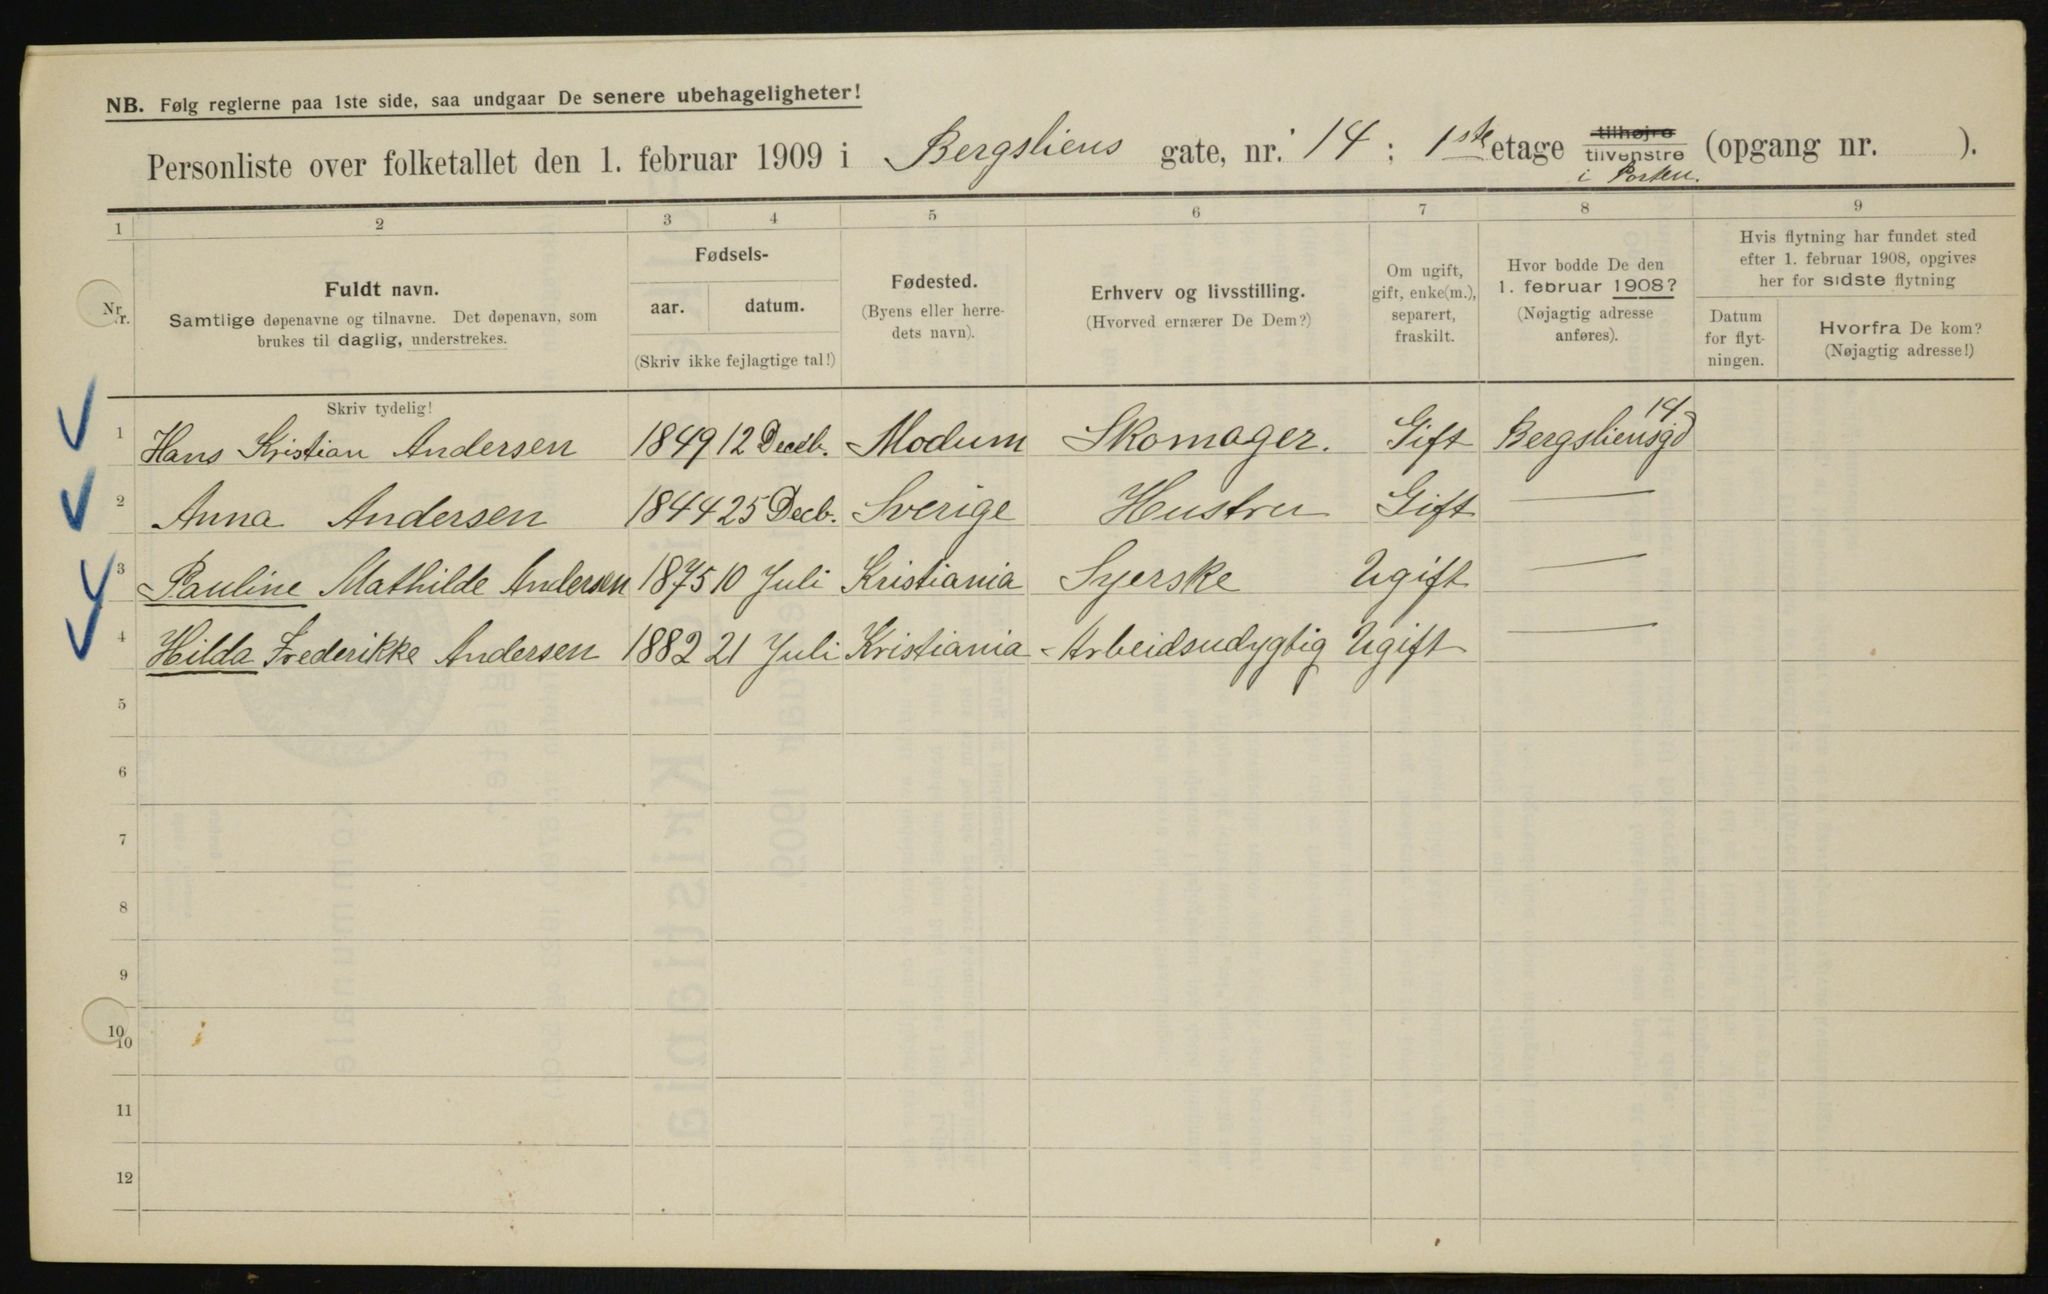 NB. Følg reglerne paa 1ste side, saa undgaar De senere ubehageligheter!
Personliste over folketallet den 1. februar 1909 i Bergsliens gate, nr. 14 ; 1ste etage tilhøjre tilvenstre (opgang nr. ).
i Porten.
1 2 3 4 5 6 7 8 9
Nr.
Fuldt navn.
Samtlige døpenavne og tilnavne. Det døpenavn, som
brukes til daglig, understrekes.
Fødsels-
aar. datum.
(Skriv ikke fejlagtige tal!)
Fødested.
(Byens eller herre-
dets navn).
Erhverv og livsstilling.
(Hvorved ernærer De Dem?)
Om ugift,
gift, enke(m.),
separert,
fraskilt.
Hvor bodde De den
1. februar 1908?
(Nøjagtig adresse
anføres).
Hvis flytning har fundet sted
efter 1. februar 1908, opgives
her for sidste flytning
Datum
for flyt-
ningen.
Hvorfra De kom?
(Nøjagtig adresse!)
Skriv tydelig!
1 Hans Kristian Andersen 1849 12 Decb. Modum Skomager. Gift Bergsliensgd 14
2 Anna Andersen 1844 25 Decb. Sverige Hustru Gift —
3 Pauline Mathilde Andersen 1875 10 Juli Kristiania Syerske Ugift —
4 Hilda Frederikke Andersen 1882 21 Juli Kristiania Arbeidsudygtig Ugift —
5
6
7
8
9
10
10
11
12